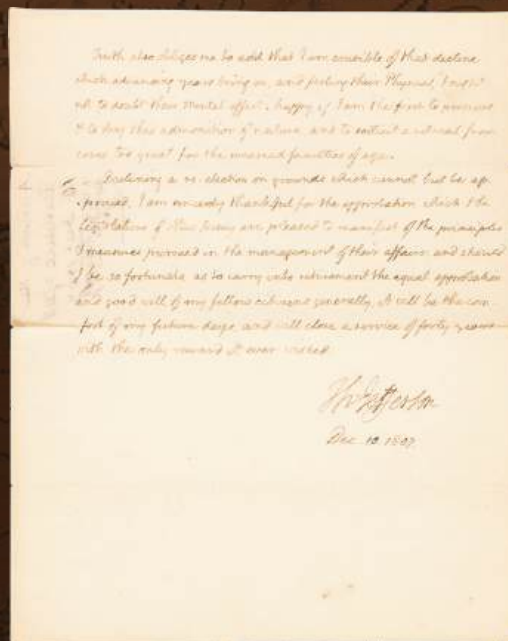 Truth also obliges me to add that I am sensible of that decline
which advancing years bring on, and feeling their Physical, I ought
not to doubt their Mental effect. happy if I am the first to perceive
& to obey this admonition of nature and to sollicit a retreat from
cares too great for the wearied faculties of age.
Declining a re-election on grounds which cannot but be ap
proved, I am sincerely thankful for the approbation which the
Legislature of New Jersey are pleased to manifest of the principles
& measures pursued in the management of their affairs and should
I be so fortunate as to carry into retirement the equal approbation
and good will of my fellow citizens generally, it will be the com
fort of my future days, and will close a service of forty years
with the only reward it ever wished.
Th Jefferson
Dec. 10. 1807.